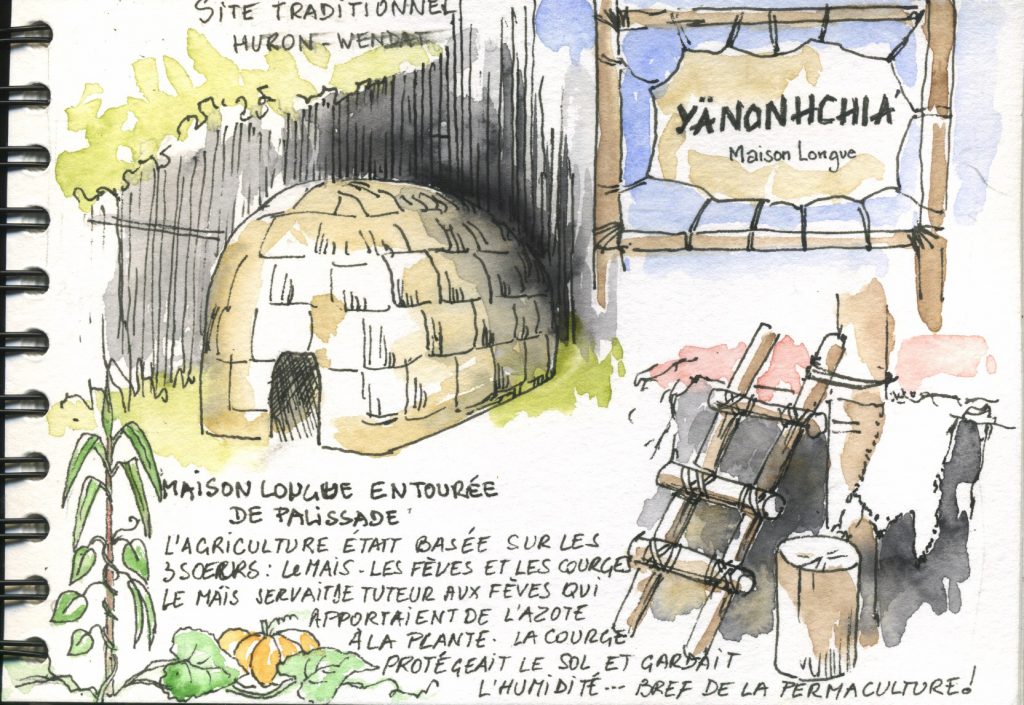 SITE TRADITIONNEL
HURON-WENDAT
YÄNONHCHIA'
Maison Longue
MAISON LONGUE ENTOURÉE
DE PALISSADE
L'AGRICULTURE ÉTAIT BASÉE SUR LES
3 SŒURS : LE MAÏS - LES FÈVES ET LES COURGES
LE MAÏS SERVAIT DE TUTEUR AUX FÈVES QUI
APPORTAIENT DE L'AZOTE
À LA PLANTE. LA COURGE
PROTÉGEAIT LE SOL ET GARDAIT
L'HUMIDITÉ... BREF DE LA PERMACULTURE!